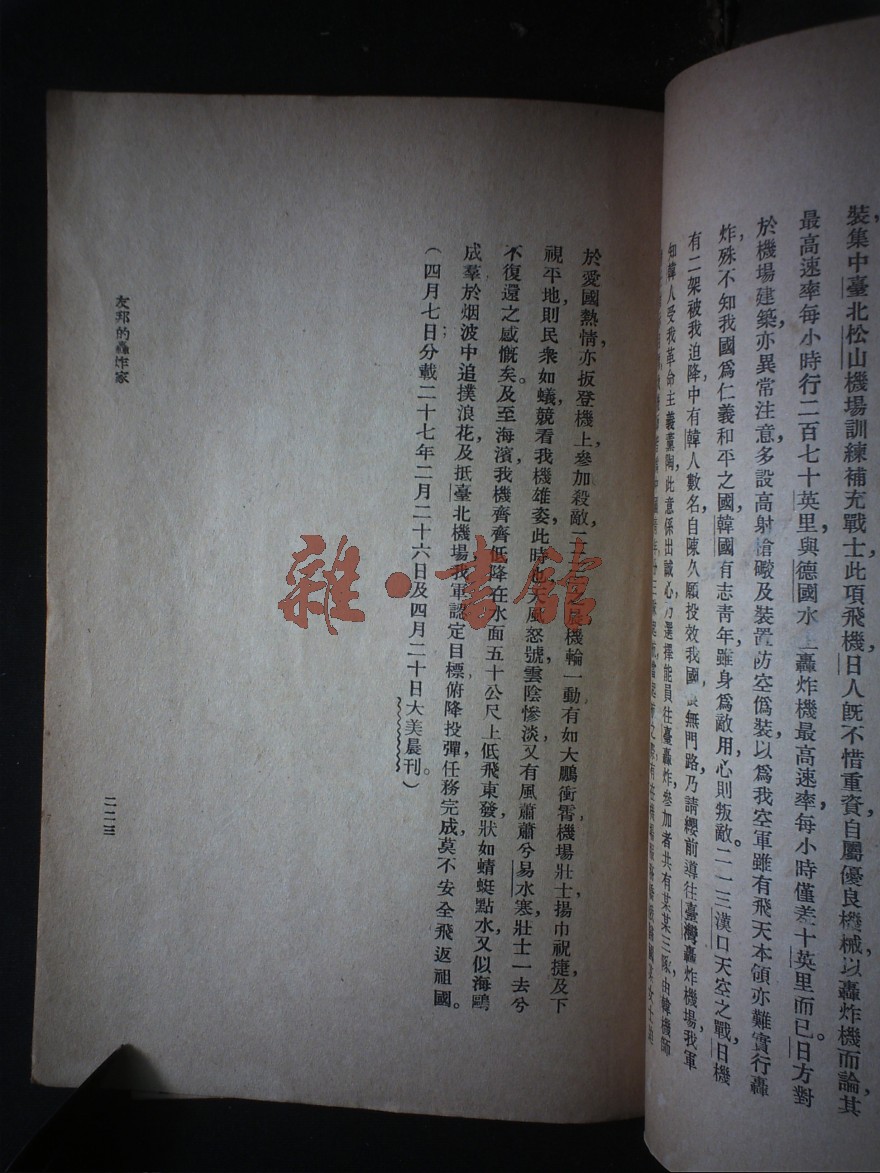 裝集中臺北松山機場訓練補充戰士此項飛機，日人旣不惜重資自屬優良機械以轟炸機而論其
最高速率每小時行二百七十英里與德國水上轟炸機最高速率每小時僅差十英里而已。日方對
於機場建築亦異常注意多設高射槍礮及裝置防空僞裝以爲我空軍雖有飛天本領亦難實行轟
炸，殊不知我國爲仁義和平之國，韓國有志靑年，雖身爲敵用，心則叛敵。二一三漢口天空之戰，日機
有二架被我迫降，中有韓人數名，自陳久願投效我國，無門路，乃請纓前導往臺灣轟炸機場，我軍
知韓人受我革命主義薰陶，此意係出誠心，乃選擇能員往臺轟炸，參加者共有某某三隊，由韓機師
於愛國熱情，亦扳登機上，參加殺敵，晨機輪一動，有如大鵬衝霄，機場壯士揚巾祝捷，及下
視平地，則民衆如蟻，競看我機雄姿，此時也，天風怒號，雲陰慘淡，又有風蕭蕭兮易水寒，壯士一去兮
不復還之感慨矣。及至海濱，我機齊齊低降，在水面五十公尺上低飛東發，狀如蜻蜓點水，又似海鷗
成羣，於烟波中追撲浪花，及抵臺北機場，我軍認定目標，俯降投彈，任務完成，莫不安全飛返祖國。
（四月七日分載二十七年二月二十六日及四月二十日大美晨刊。）
友邦的轟炸家
二二三
雜·書館